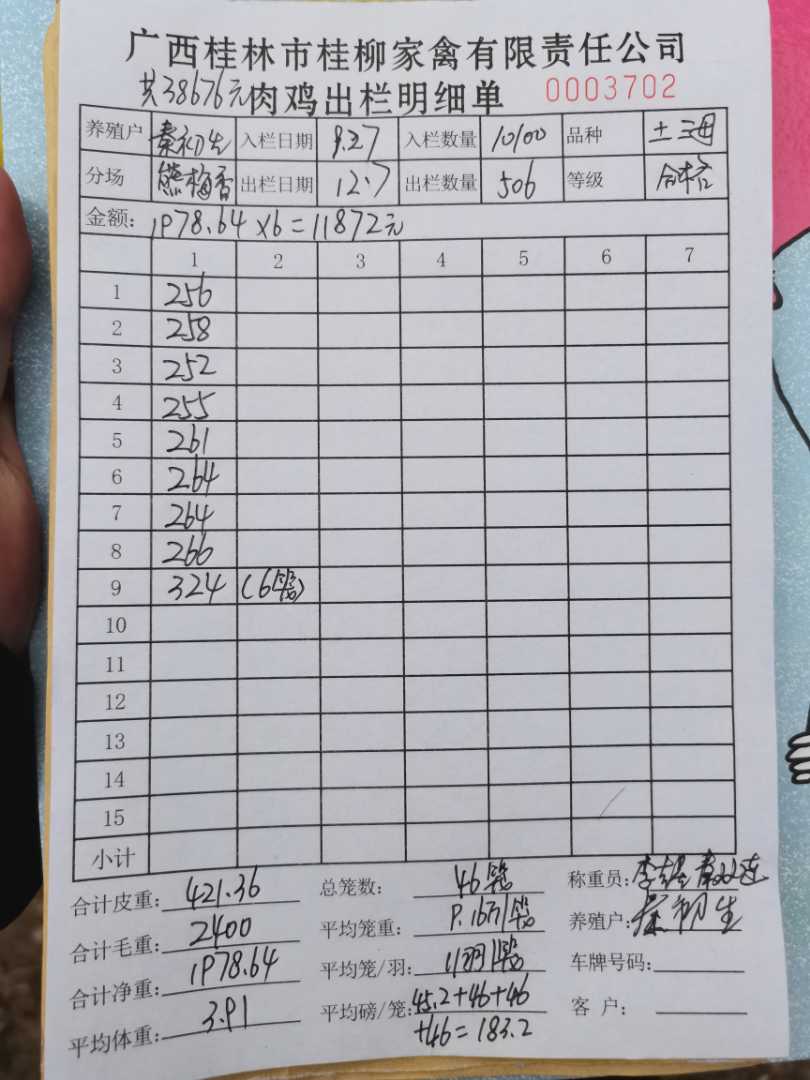 广西桂林市桂柳家禽有限责任公司
共38676元 肉鸡出栏明细单 0003702
养殖户 秦初生 入栏日期 9.27 入栏数量 10100 品种 土三母
分场 熊梅香 出栏日期 12.7 出栏数量 506 等级 合格
金额: 1978.64×6=11872元
1 2 3 4 5 6 7
1 256
2 258
3 252
4 255
5 261
6 264
7 264
8 266
9 324 (6笼)
10
11
12
13
14
15
小计
合计皮重: 421.36 总笼数: 46笼 称重员:
合计毛重: 2400 平均笼重: 9.16斤/笼 养殖户: 秦初生
合计净重: 1978.64 平均笼/羽: 11羽/笼 车牌号码:
平均体重: 3.91 平均磅/笼: 45.2+46+46 客 户:
+46=183.2